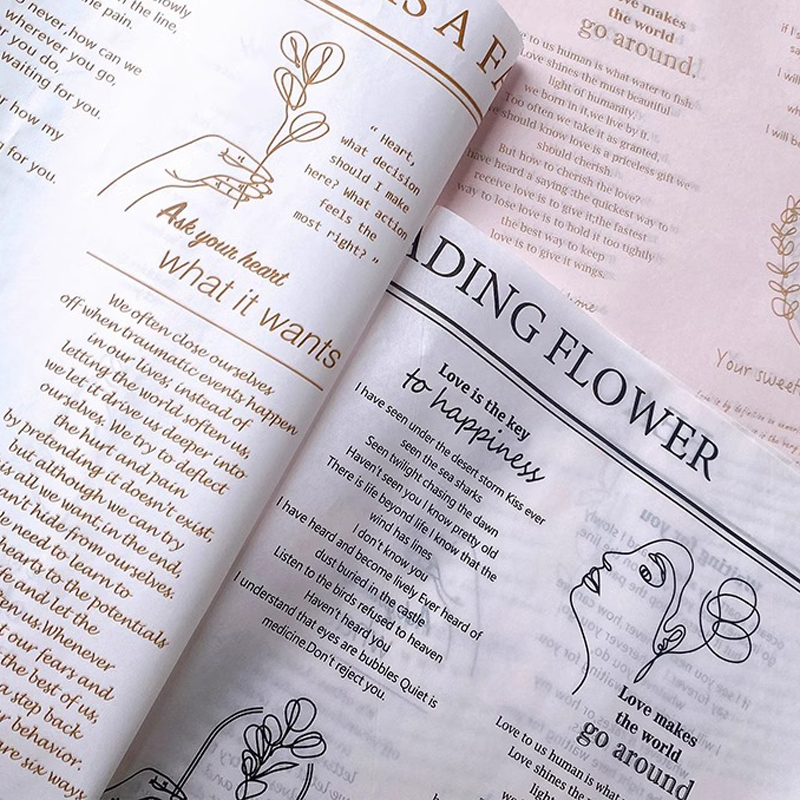 slowly
the line,
the pain.
never, how can we
wherever you go,
you do,
waiting for you.
or how my
g for you.
IS A FA
" Heart,
what decision
should I make
here? What action
feels the
most right? "
Ask your heart
what it wants
We often close ourselves
off when traumatic events happen
in our lives; instead of
letting the world soften us,
we let it drive us deeper into
ourselves. We try to deflect
the hurt and pain
by pretending it doesn't exist,
but although we can try
this all we want, in the end,
can't hide from ourselves.
We need to learn to
hearts to the potentials
life and let the
en us. Whenever
our fears and
the best of us,
a step back
r behavior.
are six ways
ADING FLOWER
Love is the key
to happiness
I have seen under the desert storm Kiss ever
seen the sea sharks
Seen twilight chasing the dawn
Haven't seen you I know pretty old
There is life beyond life I know that the
wind has lines
I don't know you
I have heard and become lively Ever heard of
dust buried in the castle
Listen to the birds refused to heaven
Haven't heard you
I understand that eyes are bubbles Quiet is
medicine.Don't reject you.
Love makes
the world
go around
Love to us human is what
Love shines the
light
Love makes
the world
go around.
e to us human is what water to fish.
Love shines the must beautiful
light of humanity,
we born in it,we live by it.
Too often we take it as granted,
should know love is a priceless gift we
should cherish.
But how to cherish the love?
have heard a saying :the quickest way to
receive love is to give it;the fastest
way to lose love is to hold it too tightly
the best way to keep
love is to give it wings.
Your sweet